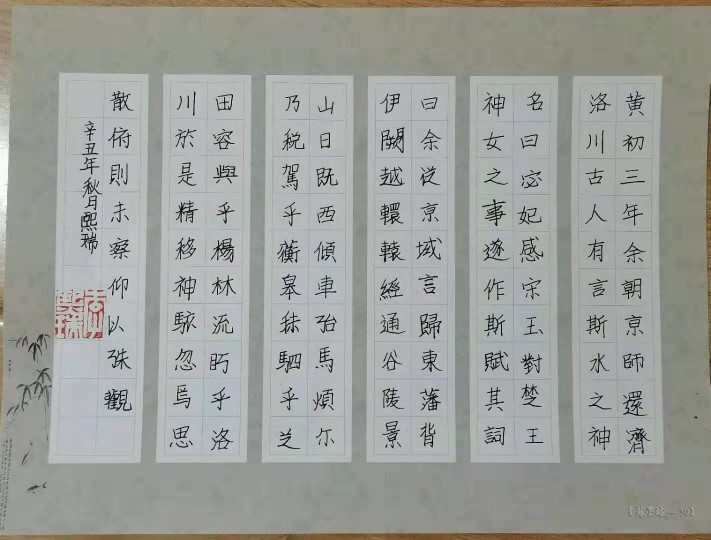 黄初三年余朝京師還濟
洛川古人有言斯水之神
名曰宓妃感宋玉對楚王
神女之事遂作斯賦其詞
曰余從京域言歸東藩背
伊闕越轘轅經通谷陵景
山日既西傾車殆馬煩尔
乃稅駕乎蘅皋秣駟乎芝
田容與乎楊林流眄乎洛
川於是精移神駭忽焉思
散俯則未察仰以殊觀
辛丑年秋月熙瑞